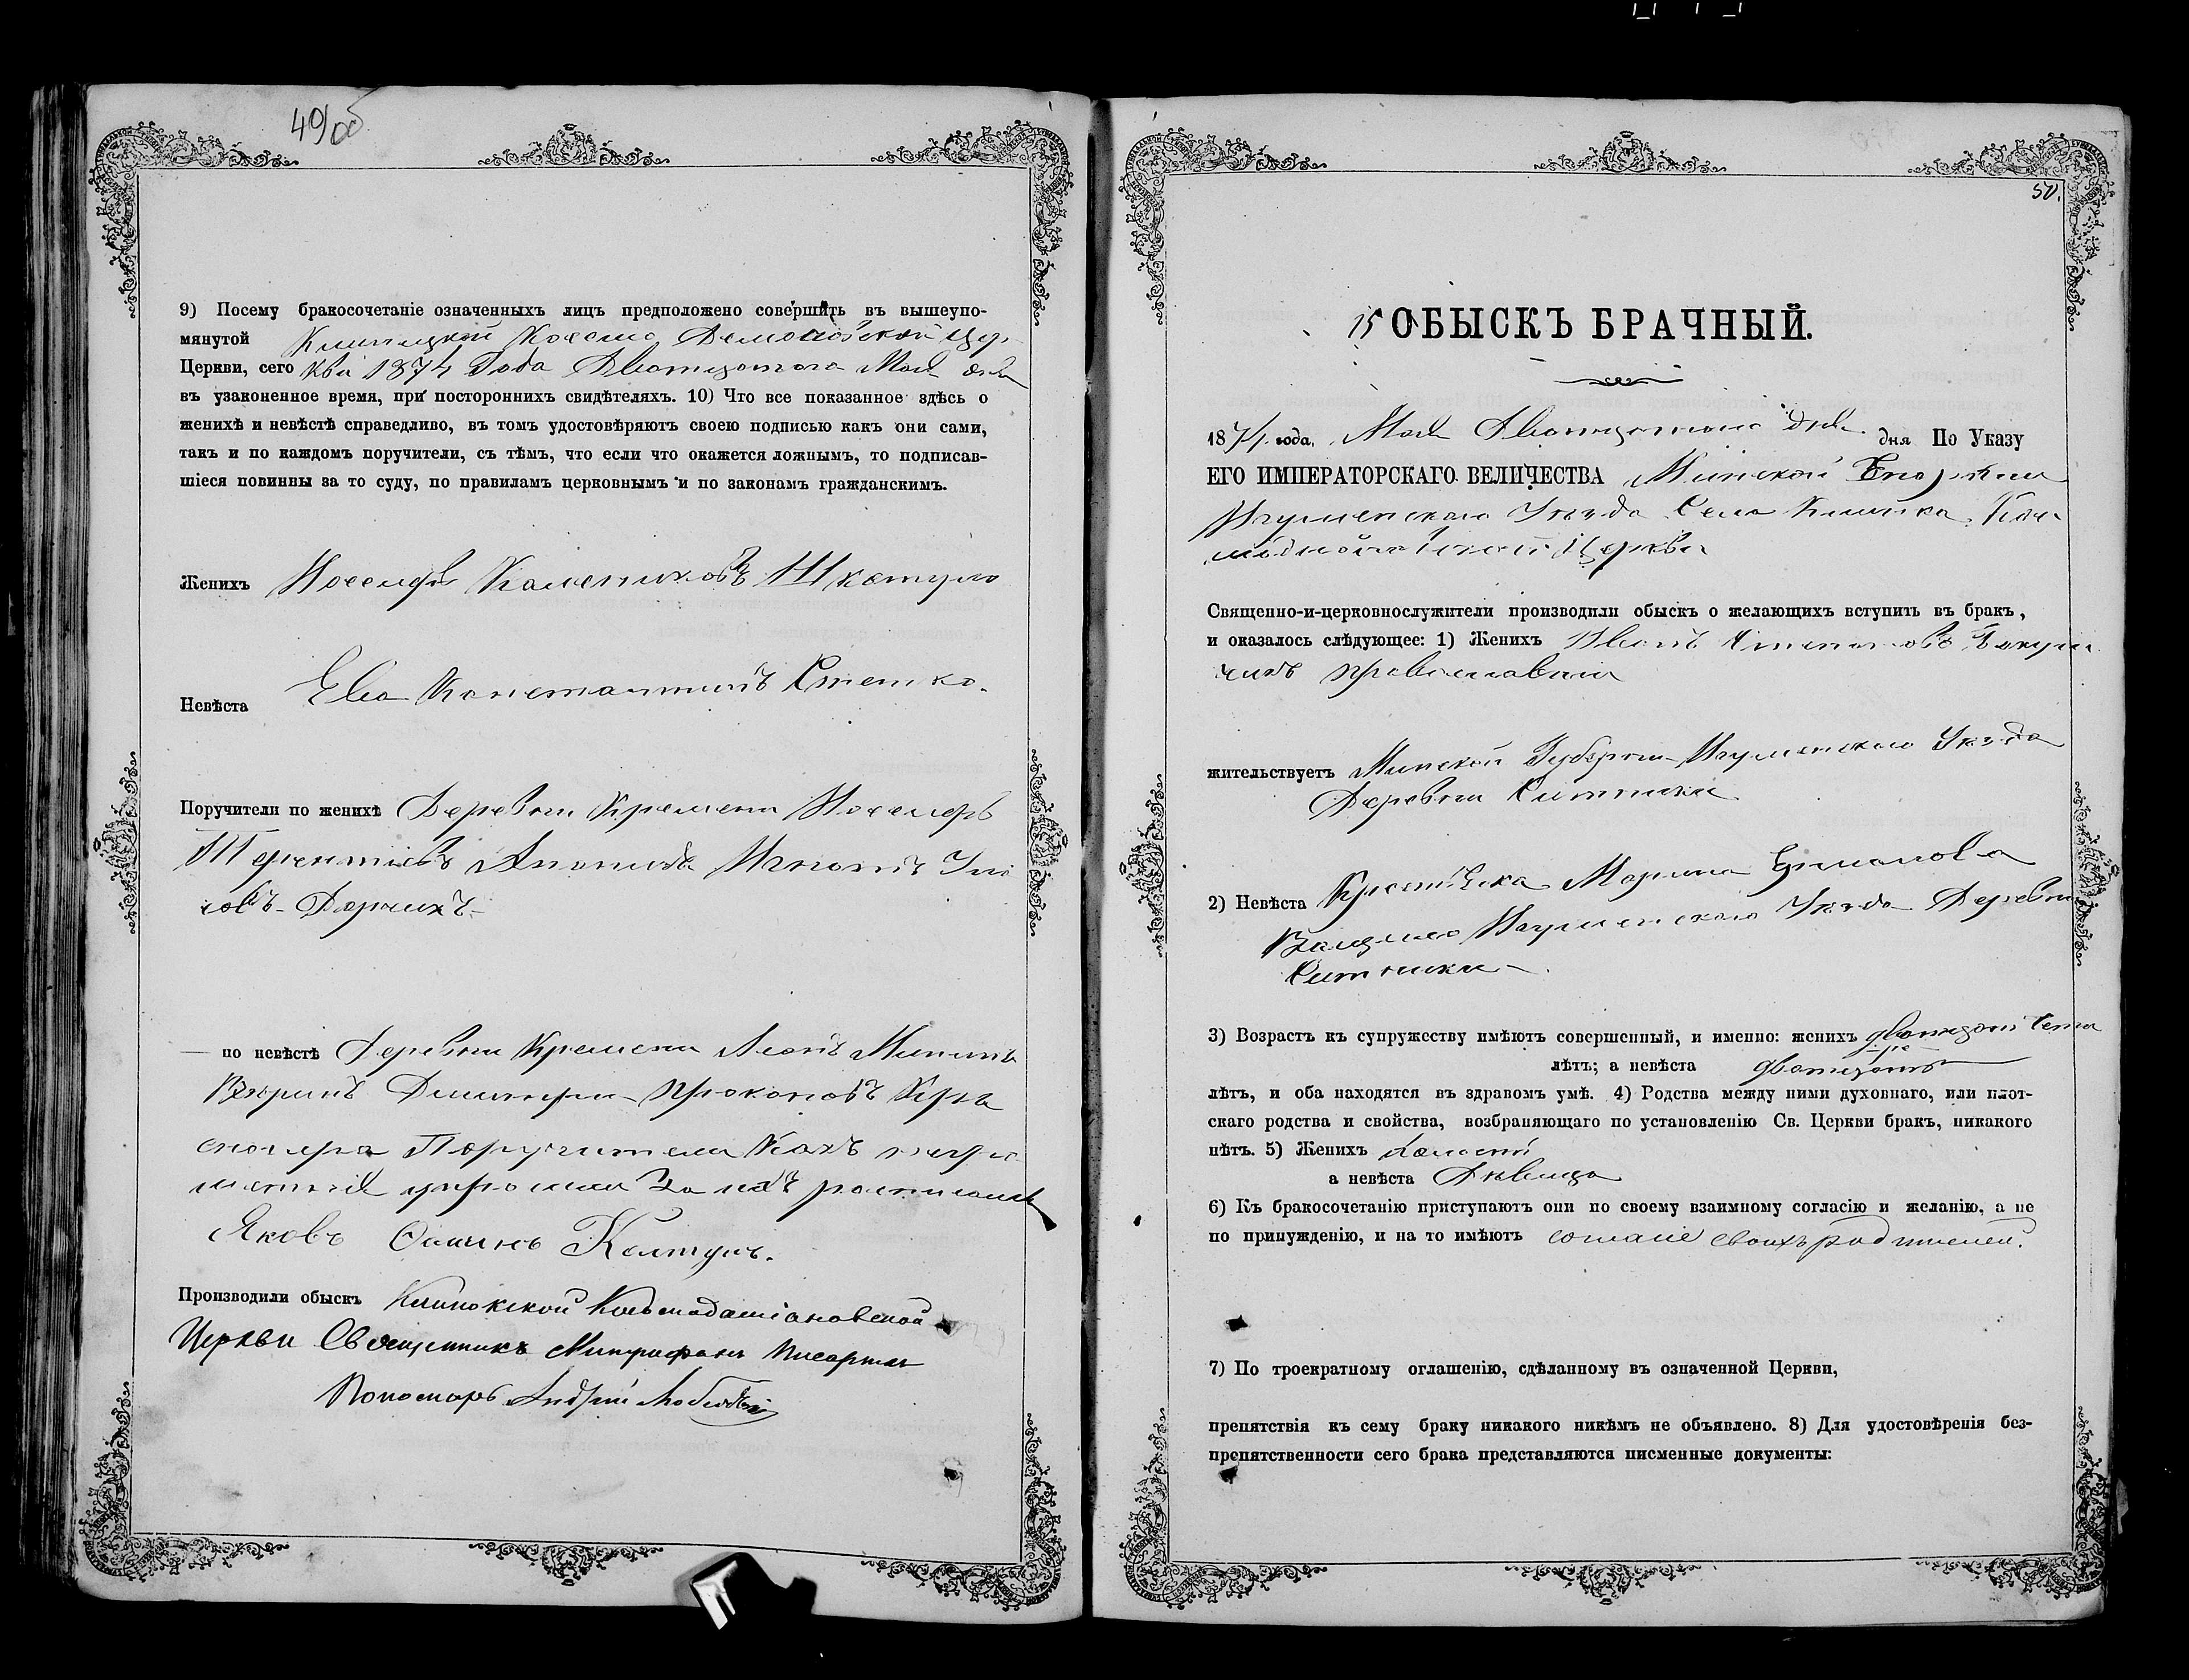 49/об
9) Посему бракосочетаніе означенныхъ лицъ предположено совершить въ вышеупо-
мянутой Клинпцкой Космо Демьяновской Цер
Церкви, сего кви 1874 Года Двотцотого Мая дня
въ узаконенное время, при постороннихъ свидѣтеляхъ. 10) Что все показанное здѣсь о
женихѣ и невѣстѣ справедливо, въ томъ удостовѣряютъ своею подписью какъ они сами,
такъ и по каждомъ поручители, съ тѣмъ, что если что окажется ложнымъ, то подписав-
шіеся повинны за то суду, по правиламъ церковнымъ и по законамъ гражданскимъ.
Женихъ Иосифъ Калениковъ Шкотуло
Невѣста Ева Констаптинъ Стешко.
Поручители по женихѣ Деревни Кремени Иосифъ
Терентіевъ Игнотъ
ловъ Дерчихъ
по невѣстѣ Деревни Кремени Леонъ Мининъ
Дмитри Прокоповъ
Поручители Какъ негра
мотній За ихъ росписался
Яковъ Осиповъ Колтунъ.
Производили обыскъ Клинокской Косьмодаміановской
Церкви Священникъ Митрофанъ
Пономарь Андрей
50.
15 ОБЫСКЪ БРАЧНЫЙ.
1874 года, Мая Двотцотого дня дня По Указу
ЕГО ИМПЕРАТОРСКАГО ВЕЛИЧЕСТВА Минской Епархіи
Игуменского Уѣзда Села Клинка Кос
Церкви
Священно-и-церковнослужители производили обыскъ о желающихъ вступить въ бракъ,
и оказалось слѣдующее: 1) Женихъ Иванъ
православній
жительствуетъ Минской Губерніи Игуменского Уѣзда
Деревни Ситники
2) Невѣста Марина
Игуменского Уѣзда Деревни
Ситники
3) Возрастъ къ супружеству имѣютъ совершенный, и именно: женихъ двотцоти Четы
ре
лѣтъ; а невѣста двотцоть
лѣтъ, и оба находятся въ здравомъ умѣ. 4) Родства между ними духовнаго, или плот-
скаго родства и свойства, возбраняющаго по установленію Св. Церкви бракъ, никакого
нѣтъ. 5) Женихъ холости
а невѣста Дѣвица
6) Къ бракосочетанію приступаютъ они по своему взаимному согласію и желанію, а не
по принужденію, и на то имѣютъ согласіе своихъ родителей.
7) По троекратному оглашенію, сдѣланному въ означенной Церкви,
препятствія къ сему браку никакого никѣмъ не объявлено. 8) Для удостовѣренія без-
препятственности сего брака представляются писменные документы: